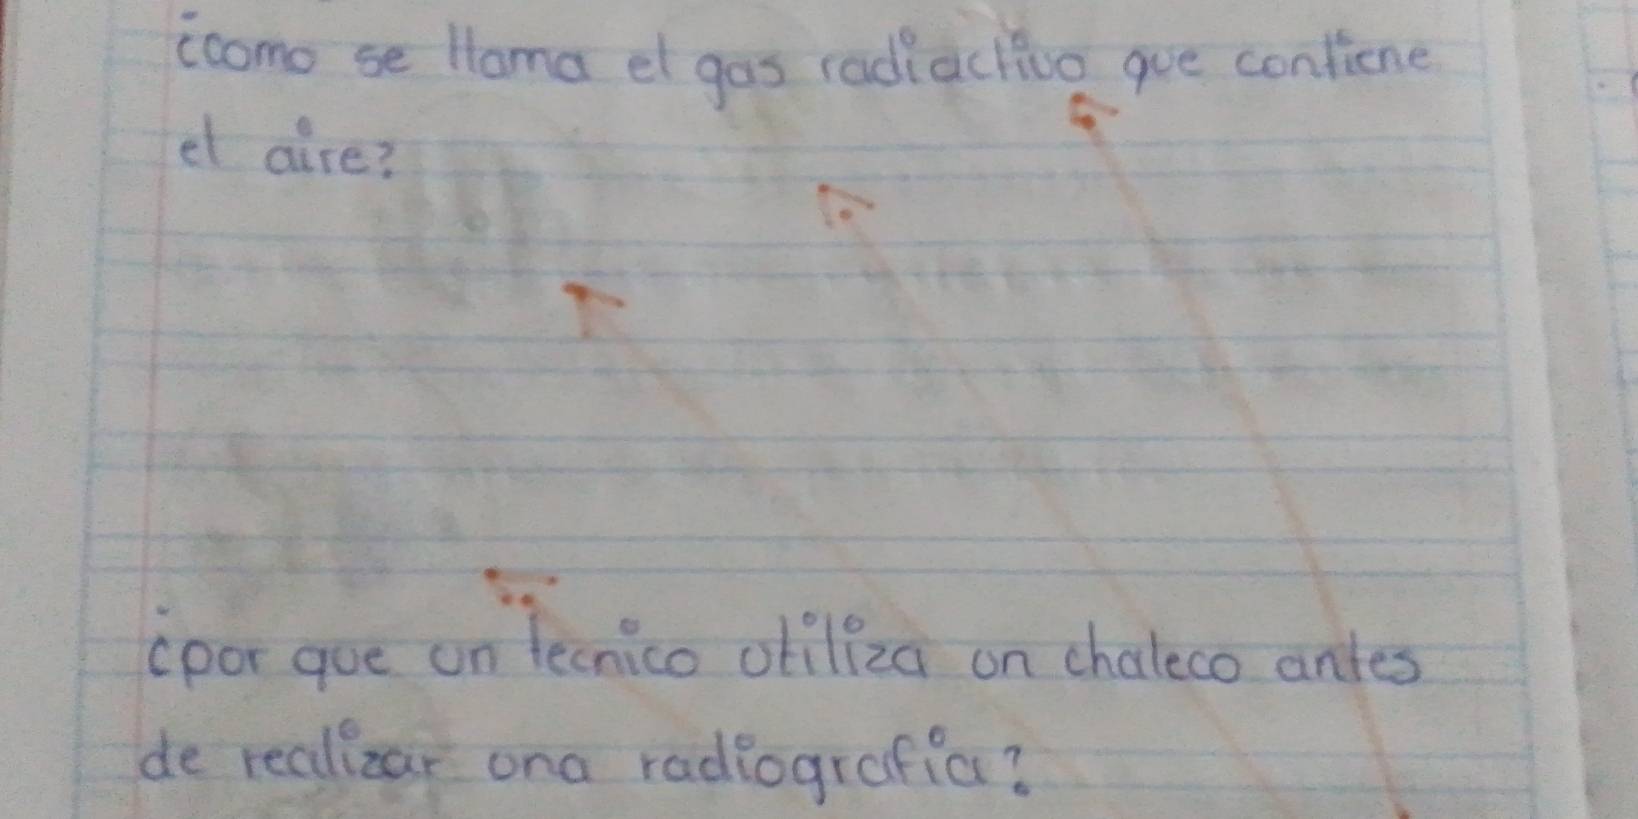 ¿como se llama el gas radiactivo que contiene
el aire?
¿por que un tecnico utiliza un chaleco antes
de realizar una radiografia?